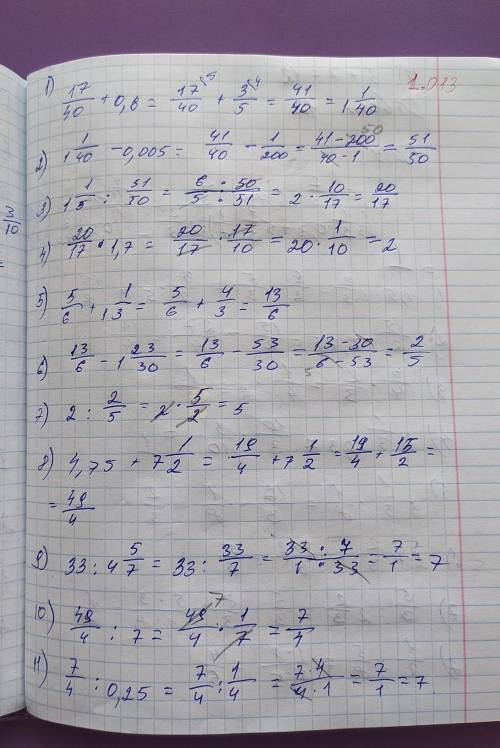 1.013
1) 17/40 + 0,6 = 17/40 + 3/5 = 41/40 = 1 1/40
2) 1 1/40 - 0,005 = 41/40 - 1/200 = 41-200/40-1 = 51/50
3) 1 1/5 : 51/50 = 6·50/5·51 = 2 · 10/17 = 20/17
4) 20/17 · 1,7 = 20/17 · 17/10 = 20 · 1/10 = 2
5) 5/6 + 1 1/3 = 5/6 + 4/3 = 13/6
6) 13/6 - 1 23/30 = 13/6 - 53/30 = 13-30/6-53 = 2/5
7) 2 : 2/5 = 2 · 5/2 = 5
8) 4,75 + 7 1/2 = 19/4 + 7 1/2 = 19/4 + 15/2 =
= 49/4
9) 33 : 4 5/7 = 33 : 33/7 = 33·7/1·33 = 7/1 = 7
10) 49/4 : 7 = 49/4 · 1/7 = 7/4
11) 7/4 : 0,25 = 7/4 : 1/4 = 7·4/4·1 = 7/1 = 7
3/10
=